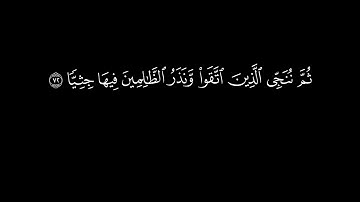 ثُمَّ نُنَجِّى ٱلَّذِينَ ٱتَّقَوا۟ وَّنَذَرُ ٱلظَّـٰلِمِينَ فِيهَا جِثِيًّا ﴿٧٢﴾